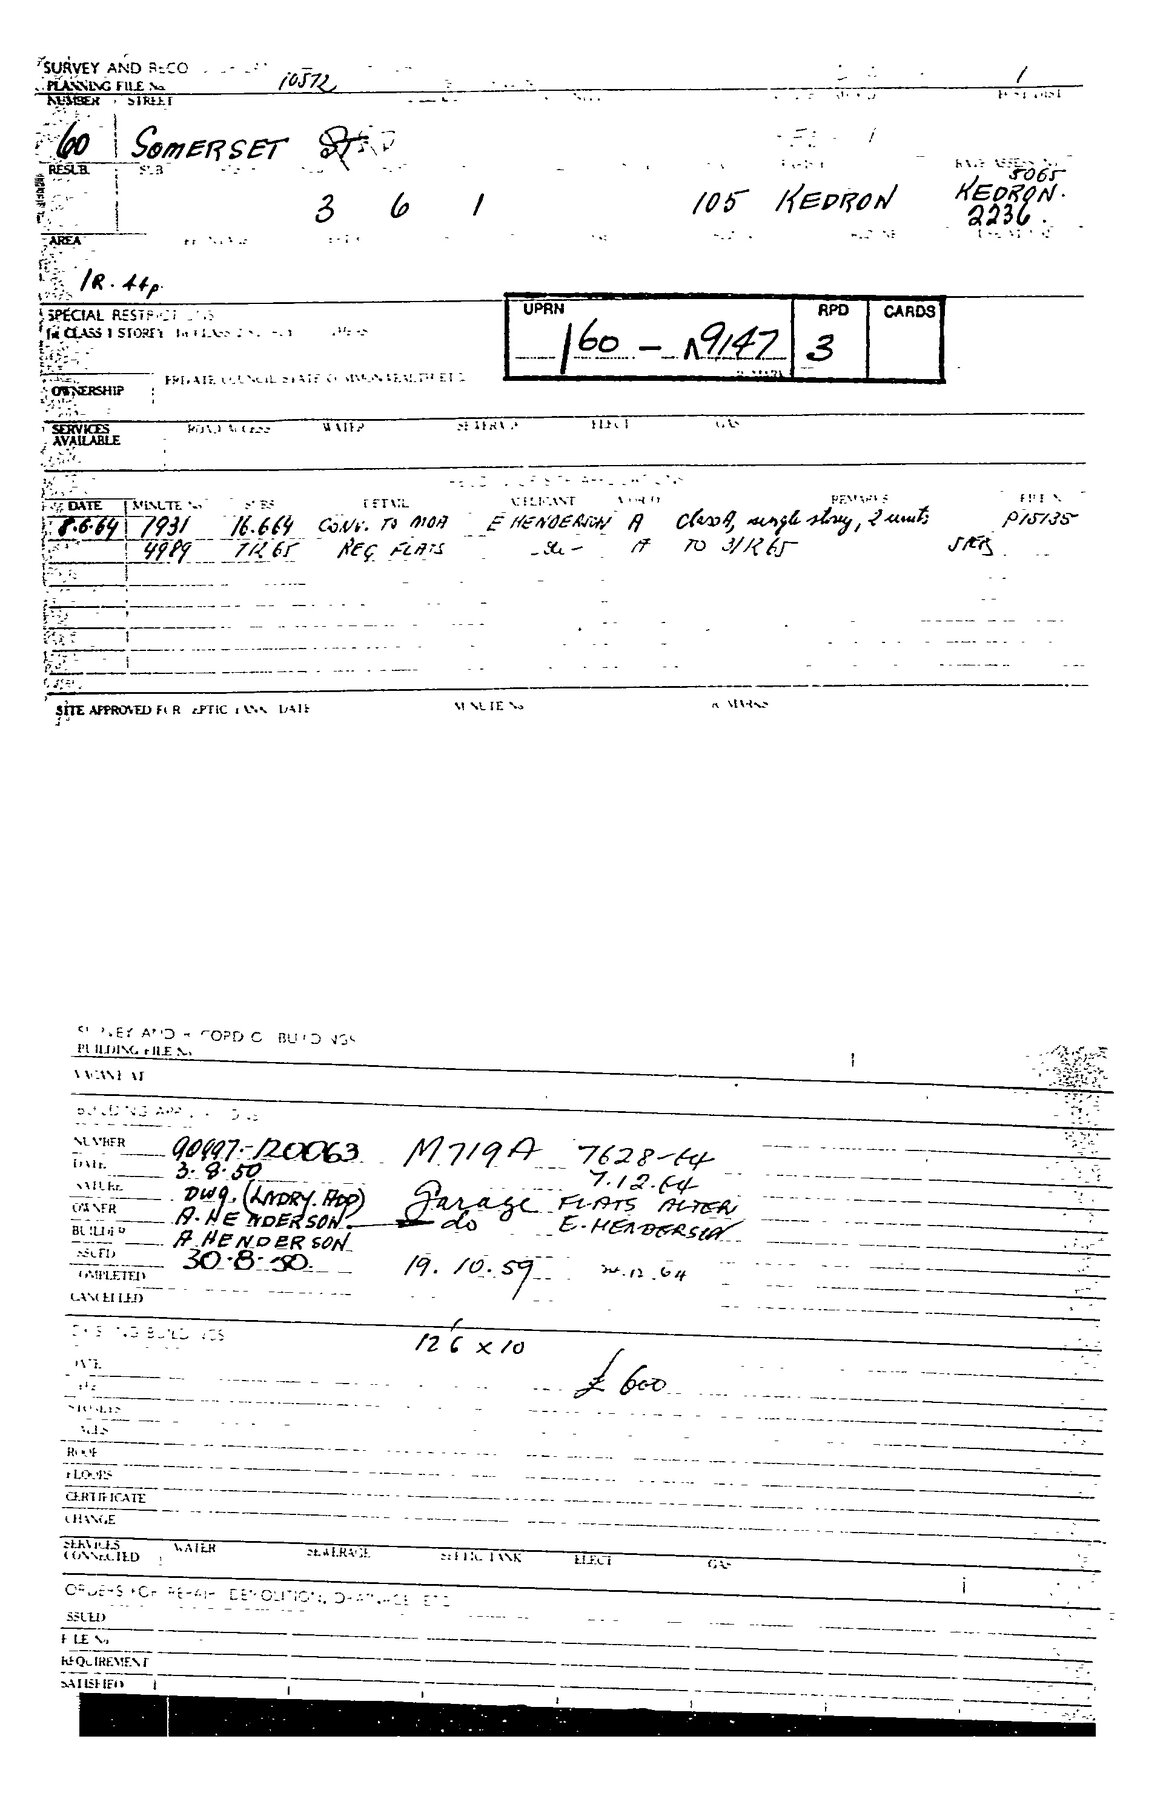 SURVEY AND RECO
PLANNING FILE No. 10572 1
NUMBER STREET
60 SOMERSET
RESUB. SUB
5065
3 6 1 105 KEDRON KEDRON.
2236.
AREA
1R. 44p.
SPECIAL RESTRICTIONS
CLASS 1 STOREY
UPRN RPD CARDS
160 - 9147 3
PRIVATE COUNCIL STATE COMMONWEALTH ETC
OWNERSHIP
SERVICES ROAD ACCESS WATER SEWERAGE ELECT GAS
AVAILABLE
DATE MINUTE No SUBS DETAIL APPLICANT REMARKS FILE No
8.6.64 1931 16.6.64 CONV. TO MOA E HENDERSON A Class A, single storey, 2 units P15135
4989 7 12 65 REG FLATS A TO 31 12 65
SITE APPROVED FOR SEPTIC TANK DATE MINUTE No REMARKS
SURVEY AND RECORD OF BUILDINGS
BUILDING FILE No
VACANT AT
BUILDING APPLICATIONS
NUMBER 90497-120063 M719A 7628-64
DATE 3.8.50 7.12.64
NATURE DWG. (LNDRY. ADD) Garage FLATS ALTER
OWNER A. HENDERSON do E. HENDERSON
BUILDER A HENDERSON
ISSUED 30.8.50. 19.10.59 12.64
COMPLETED
CANCELLED
EXISTING BUILDINGS 12'6 x 10
DATE
£600
STOREYS
WALLS
ROOF
FLOORS
CERTIFICATE
CHANGE
SERVICES WATER SEWERAGE SEPTIC TANK ELECT GAS
CONNECTED
ORDERS FOR REPAIR, DEMOLITION, DRAINAGE, ETC
ISSUED
FILE No
REQUIREMENT
SATISFIED